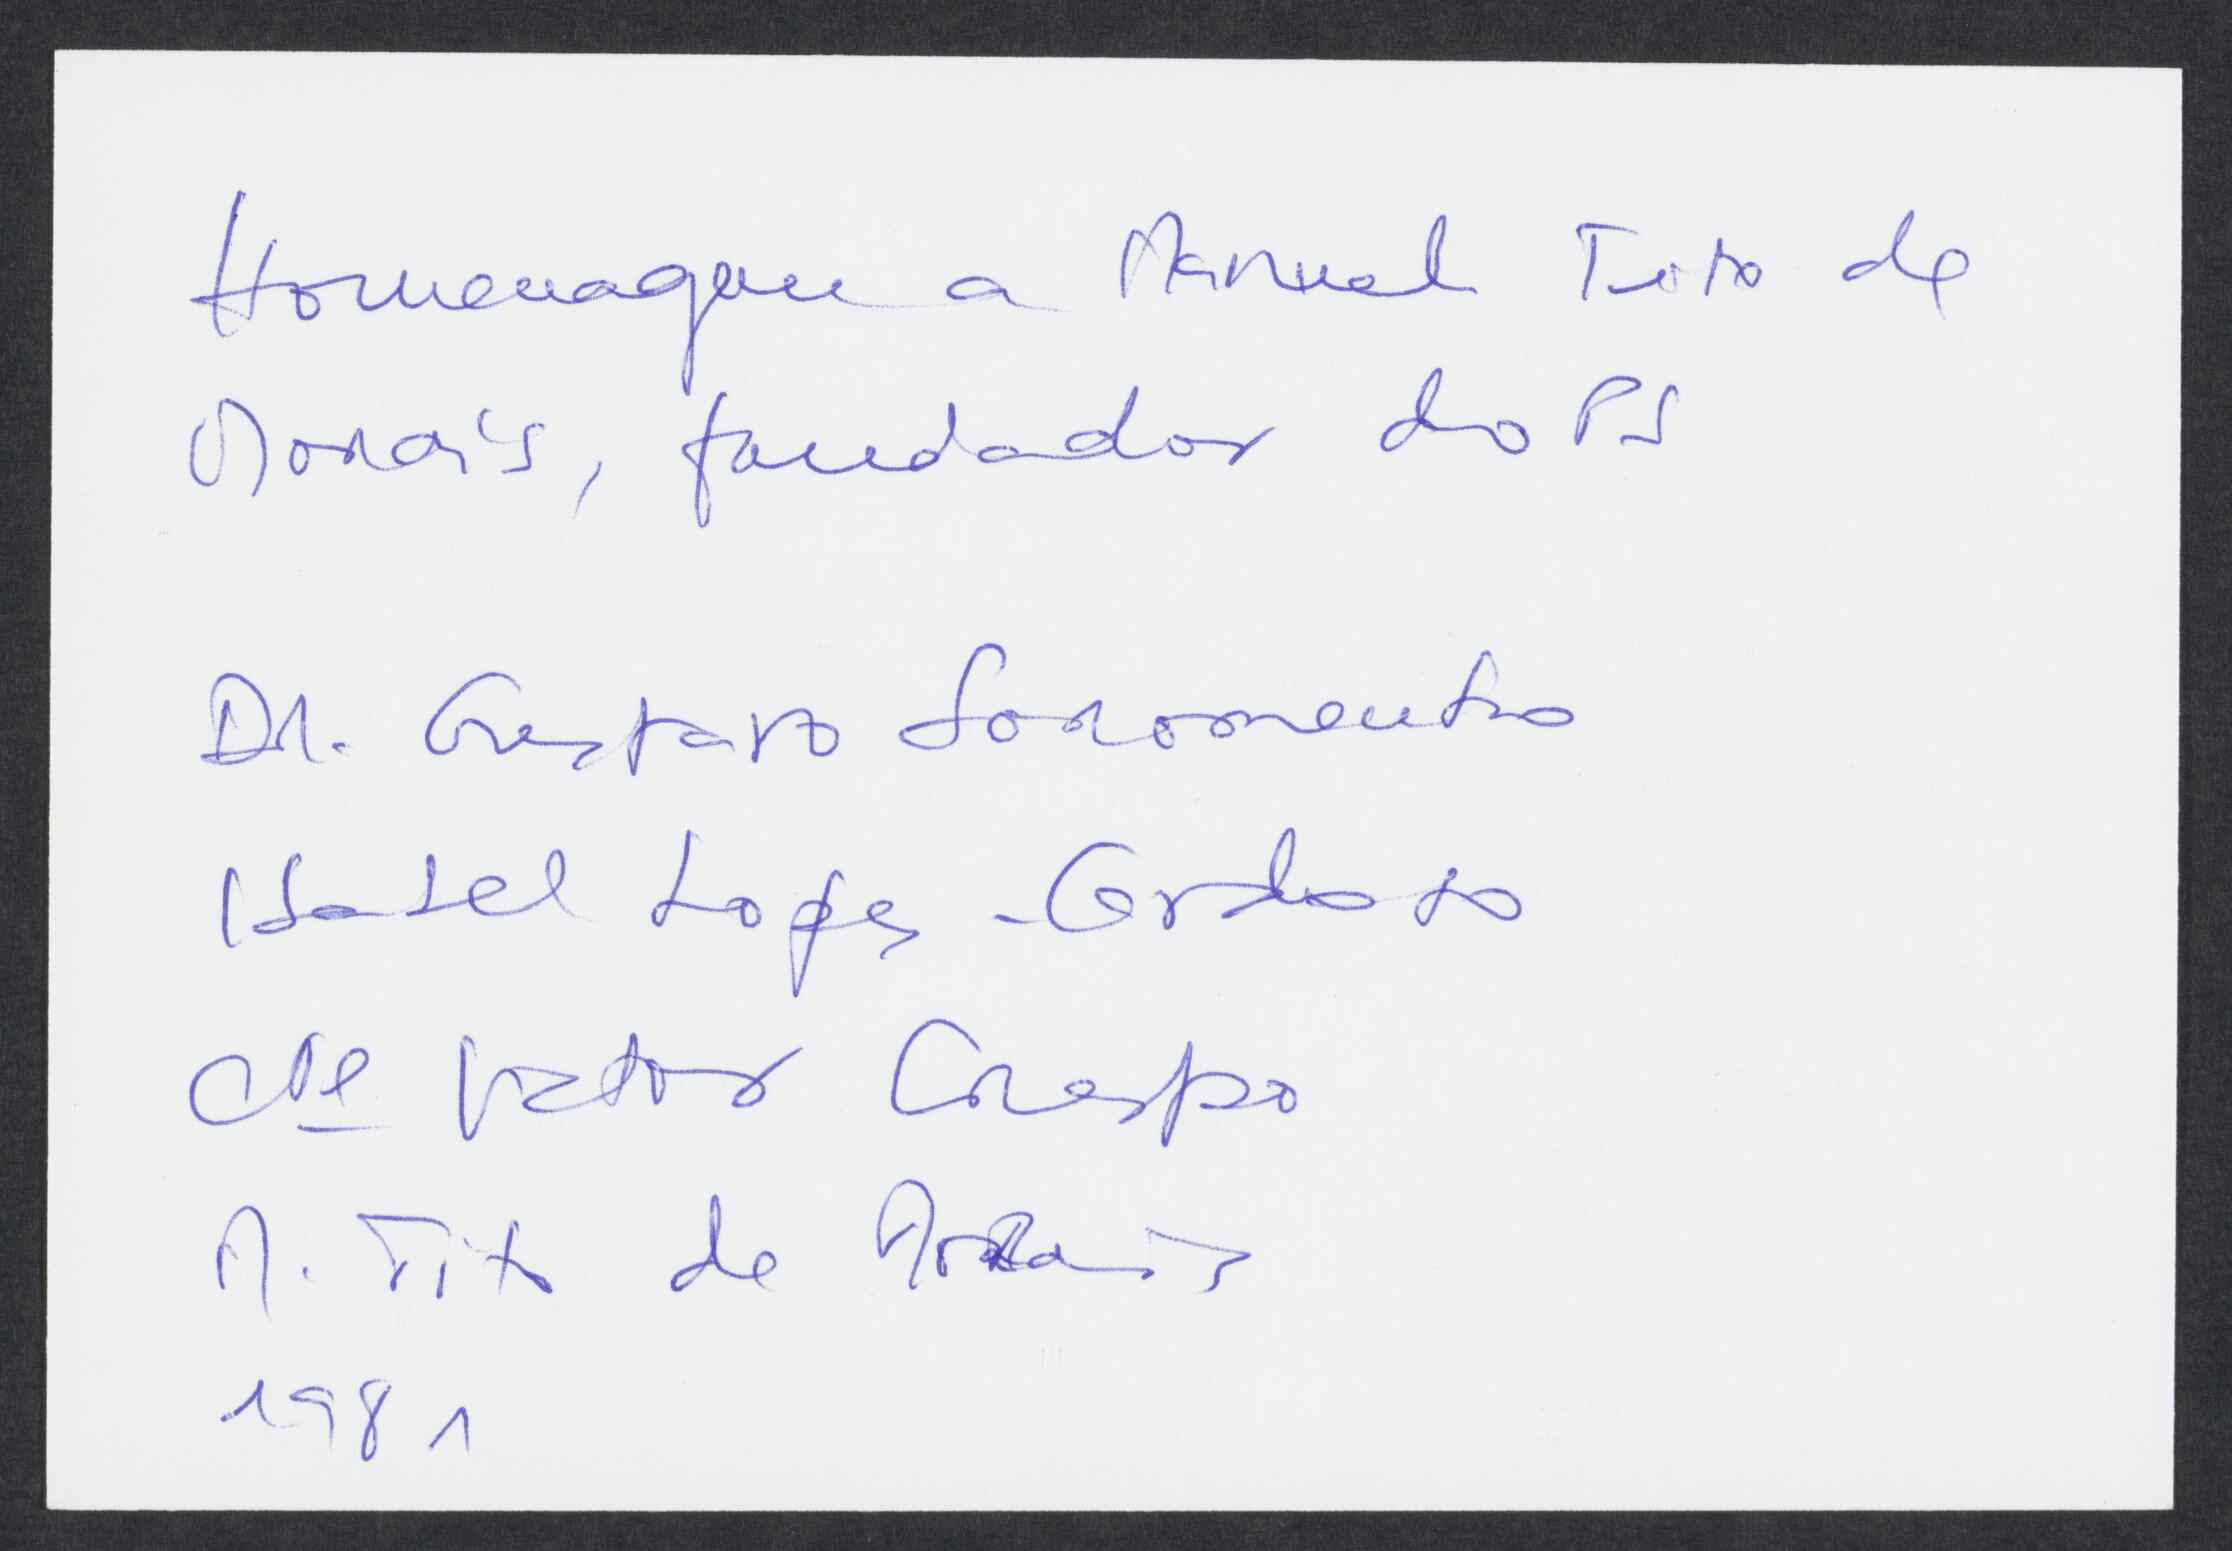 Homenagem a Manuel Tito de
Morais, fundador do PS
Dr. Gustavo Soromenho
Isabel Lopes-Cardoso
Cte Victor Crespo
M. Tito de Morais
1981